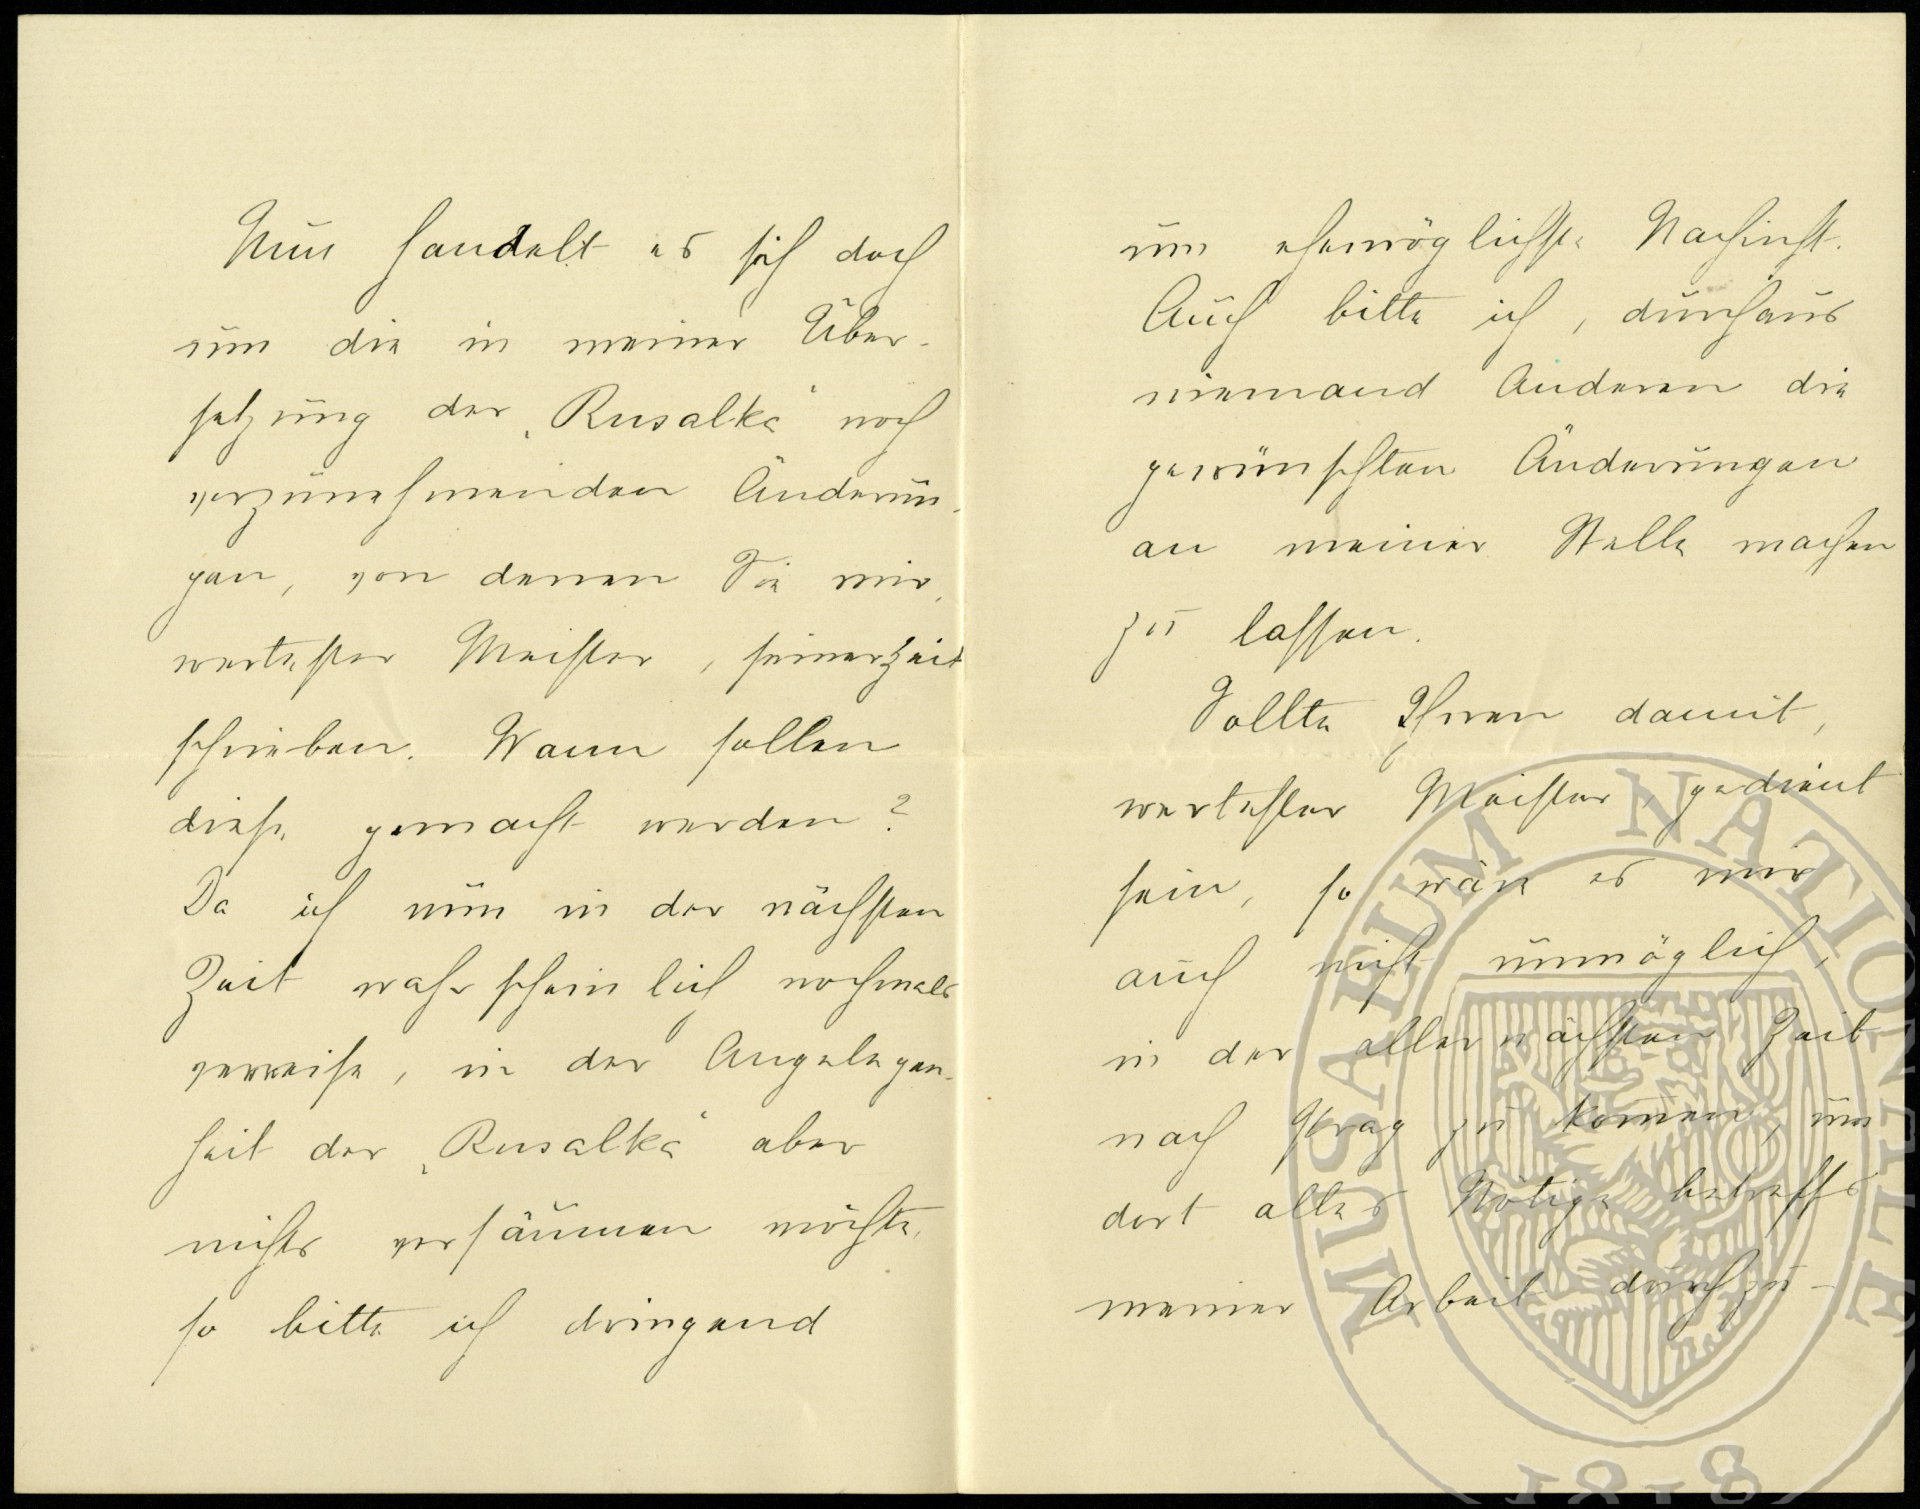 Nun handelt es sich doch
um die in meiner Über-
setzung der „Rusalka“ noch
vorzunehmenden Änderun-
gen, von denen Sie mir,
wertester Meister, seinerzeit
schrieben. Wann sollen
diese gemacht werden?
Da ich nun in der nächsten
Zeit wahrscheinlich nochmals
verreise, in der Angelegen-
heit der „Rusalka“ aber
nichts versäumen möchte,
so bitte ich dringend
um ehemöglichste Nachricht.
Auch bitte ich, durchaus
niemand Anderen die
gewünschten Änderungen
an meiner Stelle machen
zu lassen.
Sollte Ihnen damit,
wertester Meister, gedient
sein, so wäre es mir
auch nicht unmöglich,
in der allernächsten Zeit
nach Prag zu kom̄en, um
dort alles Nötige betreffs
meiner Arbeit durchzu-
MUSAEUM NATIONALE
1818